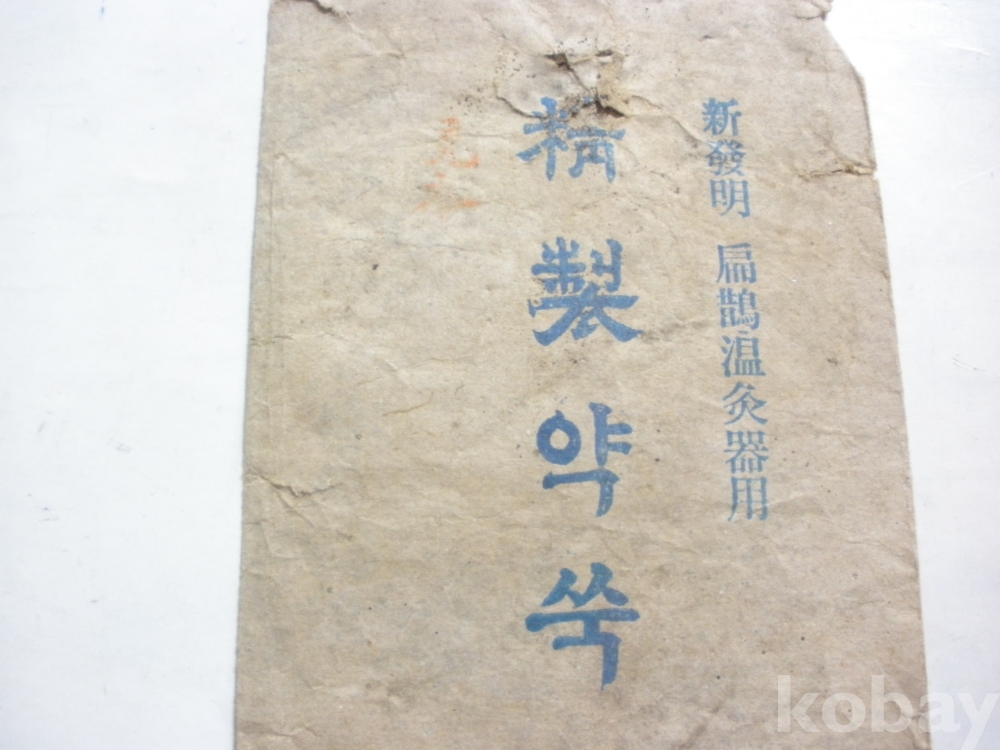 新發明 扁鵲温灸器用
精製약쑥
kobay